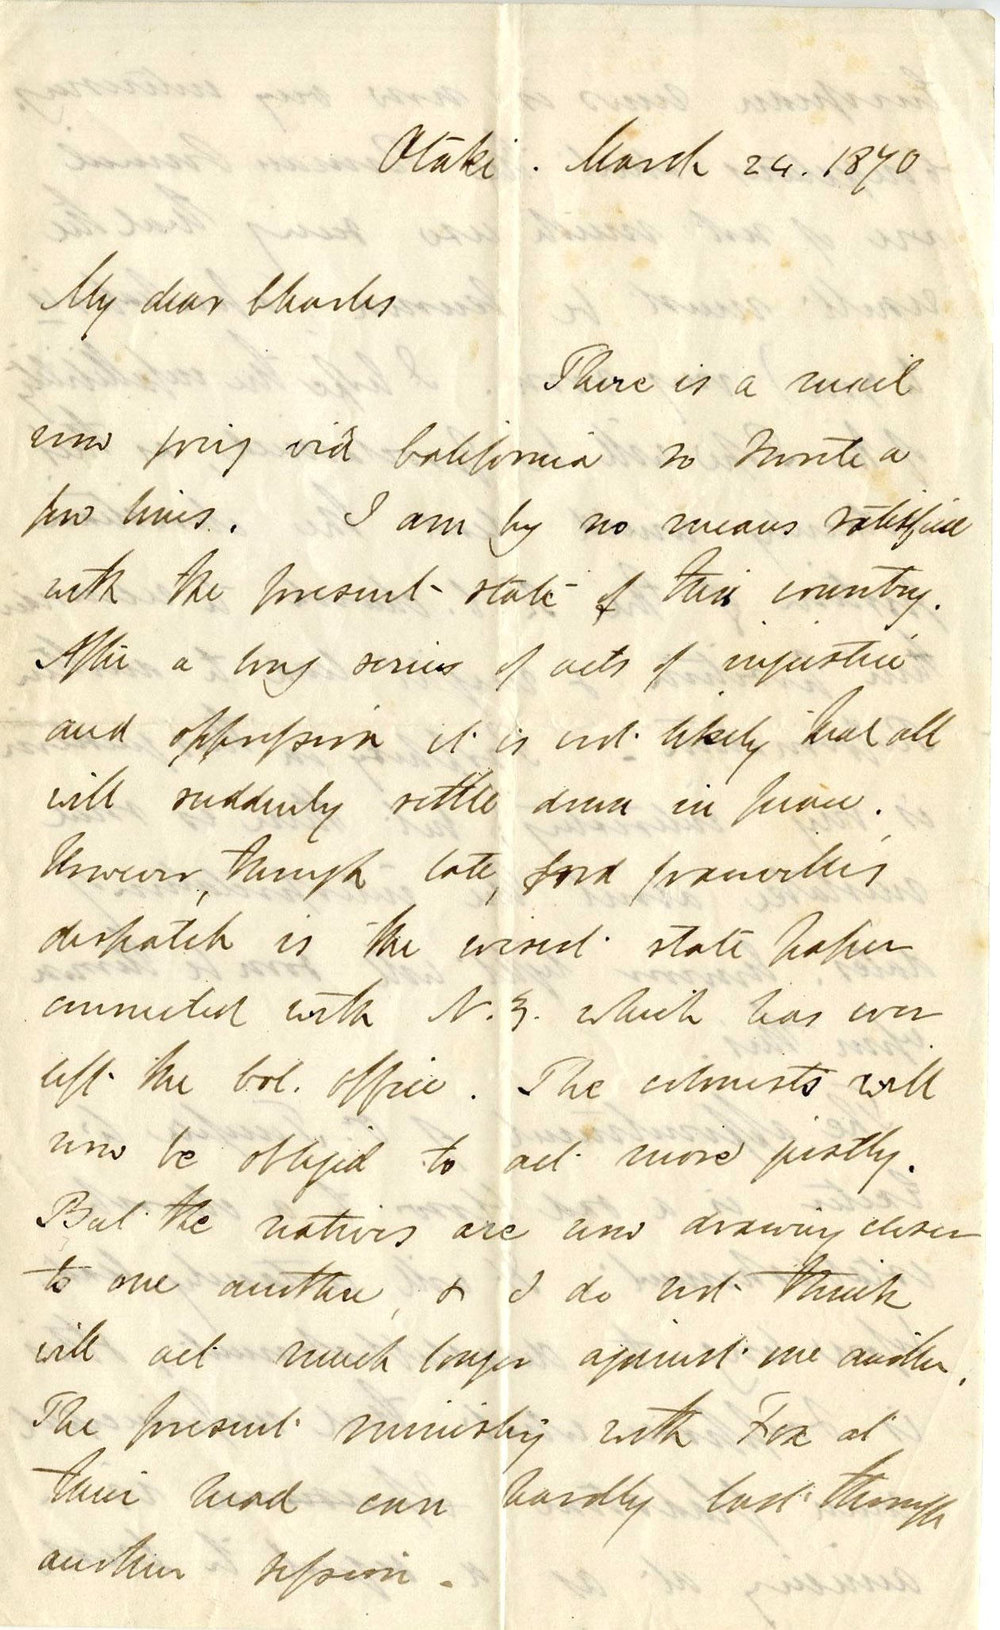 Otaki. March 24. 1870
My dear Charles
There is a mail
now going viâ California so write a
few lines. I am by no means satisfied
with the present state of this country.
After a long series of acts of injustice
and oppression it is not likely that all
will suddenly settle down in peace.
However, though late, Lord Granville's
despatch is the wisest state paper
connected with N.Z. which has ever
left the Col. office. The colonists will
now be obliged to act more justly.
But the natives are now drawing closer
to one another, & I do not think
will act much longer against one another.
The present ministry with Fox at
their head can hardly last through
another session.